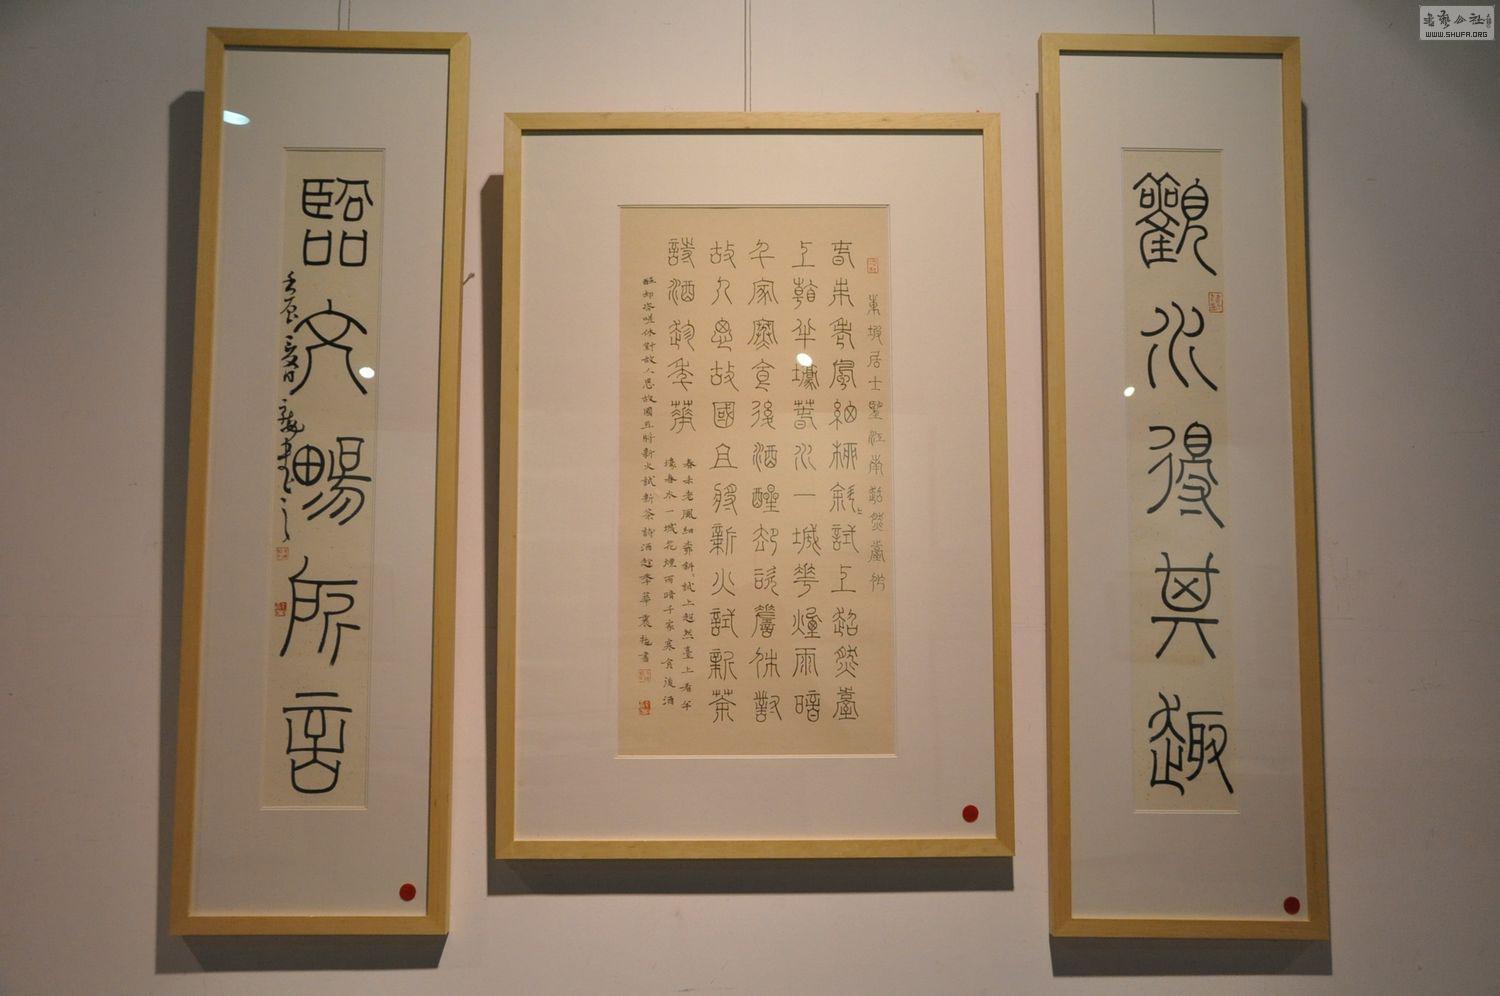 觀水得其趣
東坡居士望江南超然臺作
春未老風細柳斜斜試上超然臺
上看半壕春水一城花煙雨暗
千家寒食後酒醒却咨嗟休對
故人思故國且將新火試新茶
詩酒趁年華
春未老風細柳斜斜試上超然臺上看半
壕春水一城花煙雨暗千家寒食後酒
醒却咨嗟休對故人思故國且將新火試新茶詩酒趁年華
臨文暢所言
壬辰
書藝公社
WWW.SHUFA.ORG